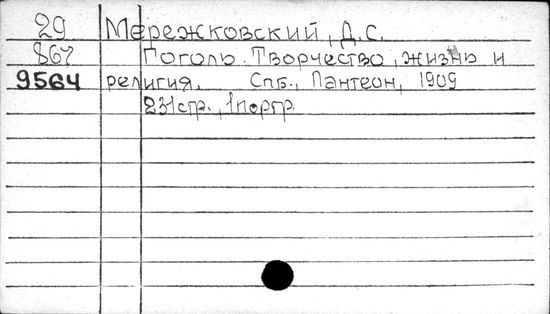 29 Мережковский, Д.С.
867 Гоголь. Творчество, жизнь и
9564 религия. Спб., Пантеон, 1909
231стр., 1портр.